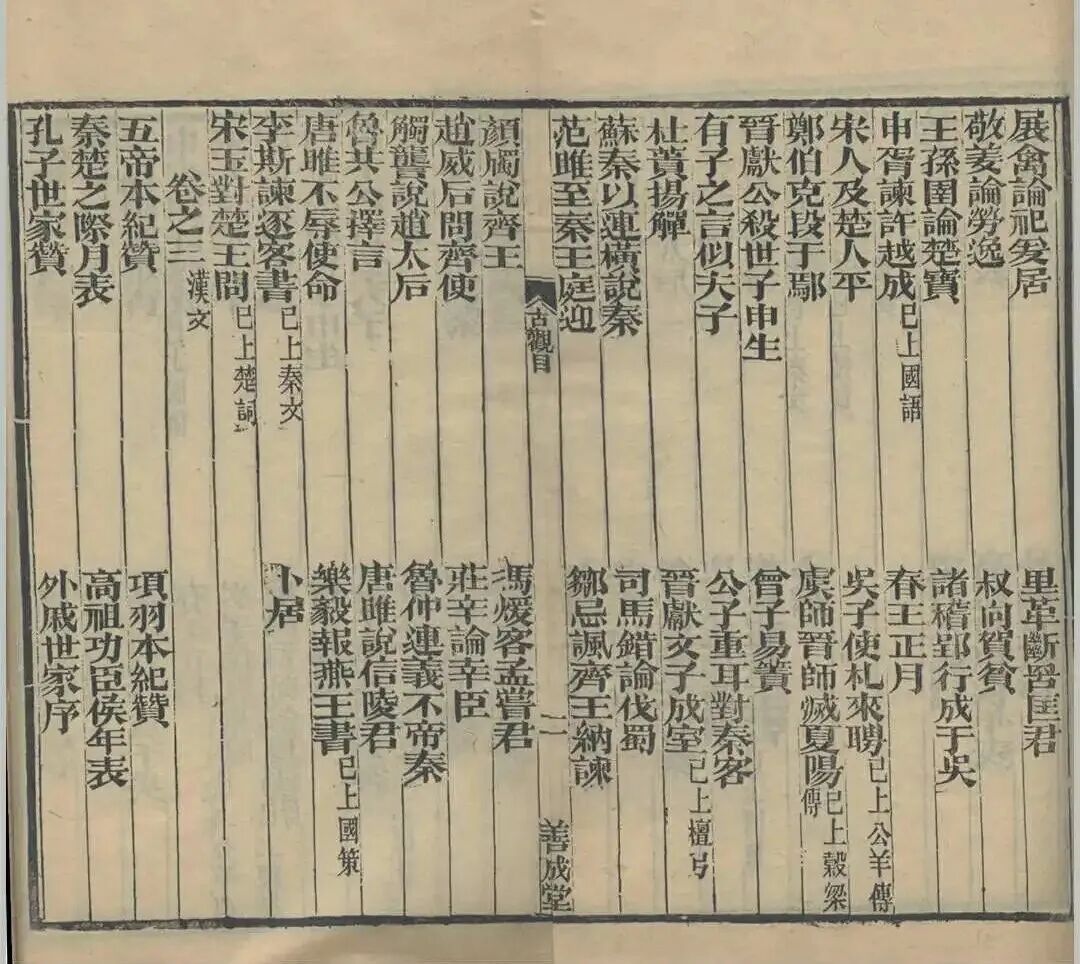 展禽論祀爰居 里革斷罟匡君
敬姜論勞逸 叔向賀貧
王孫圉論楚寶 諸稽郢行成于吳
申胥諫許越成 已上國語 春王正月
宋人及楚人平 吳子使札來聘 已上公羊傳
鄭伯克段于鄢 虞師晉師滅夏陽 已上穀梁傳
晉獻公殺世子申生 曾子易簀
有子之言似夫子 公子重耳對秦客
杜蕢揚觶 晉獻文子成室 已上檀弓
蘇秦以連橫說秦 司馬錯論伐蜀
范雎至秦王庭迎 鄒忌諷齊王納諫
古觀目 二 善成堂
顏斶說齊王 馮煖客孟嘗君
趙威后問齊使 莊辛論幸臣
觸讋說趙太后 魯仲連義不帝秦
魯共公擇言 唐雎說信陵君
唐雎不辱使命 樂毅報燕王書 已上國策
李斯諫逐客書 已上秦文 卜居
宋玉對楚王問 已上楚詞
卷之三 漢文
五帝本紀贊 項羽本紀贊
秦楚之際月表 高祖功臣侯年表
孔子世家贊 外戚世家序